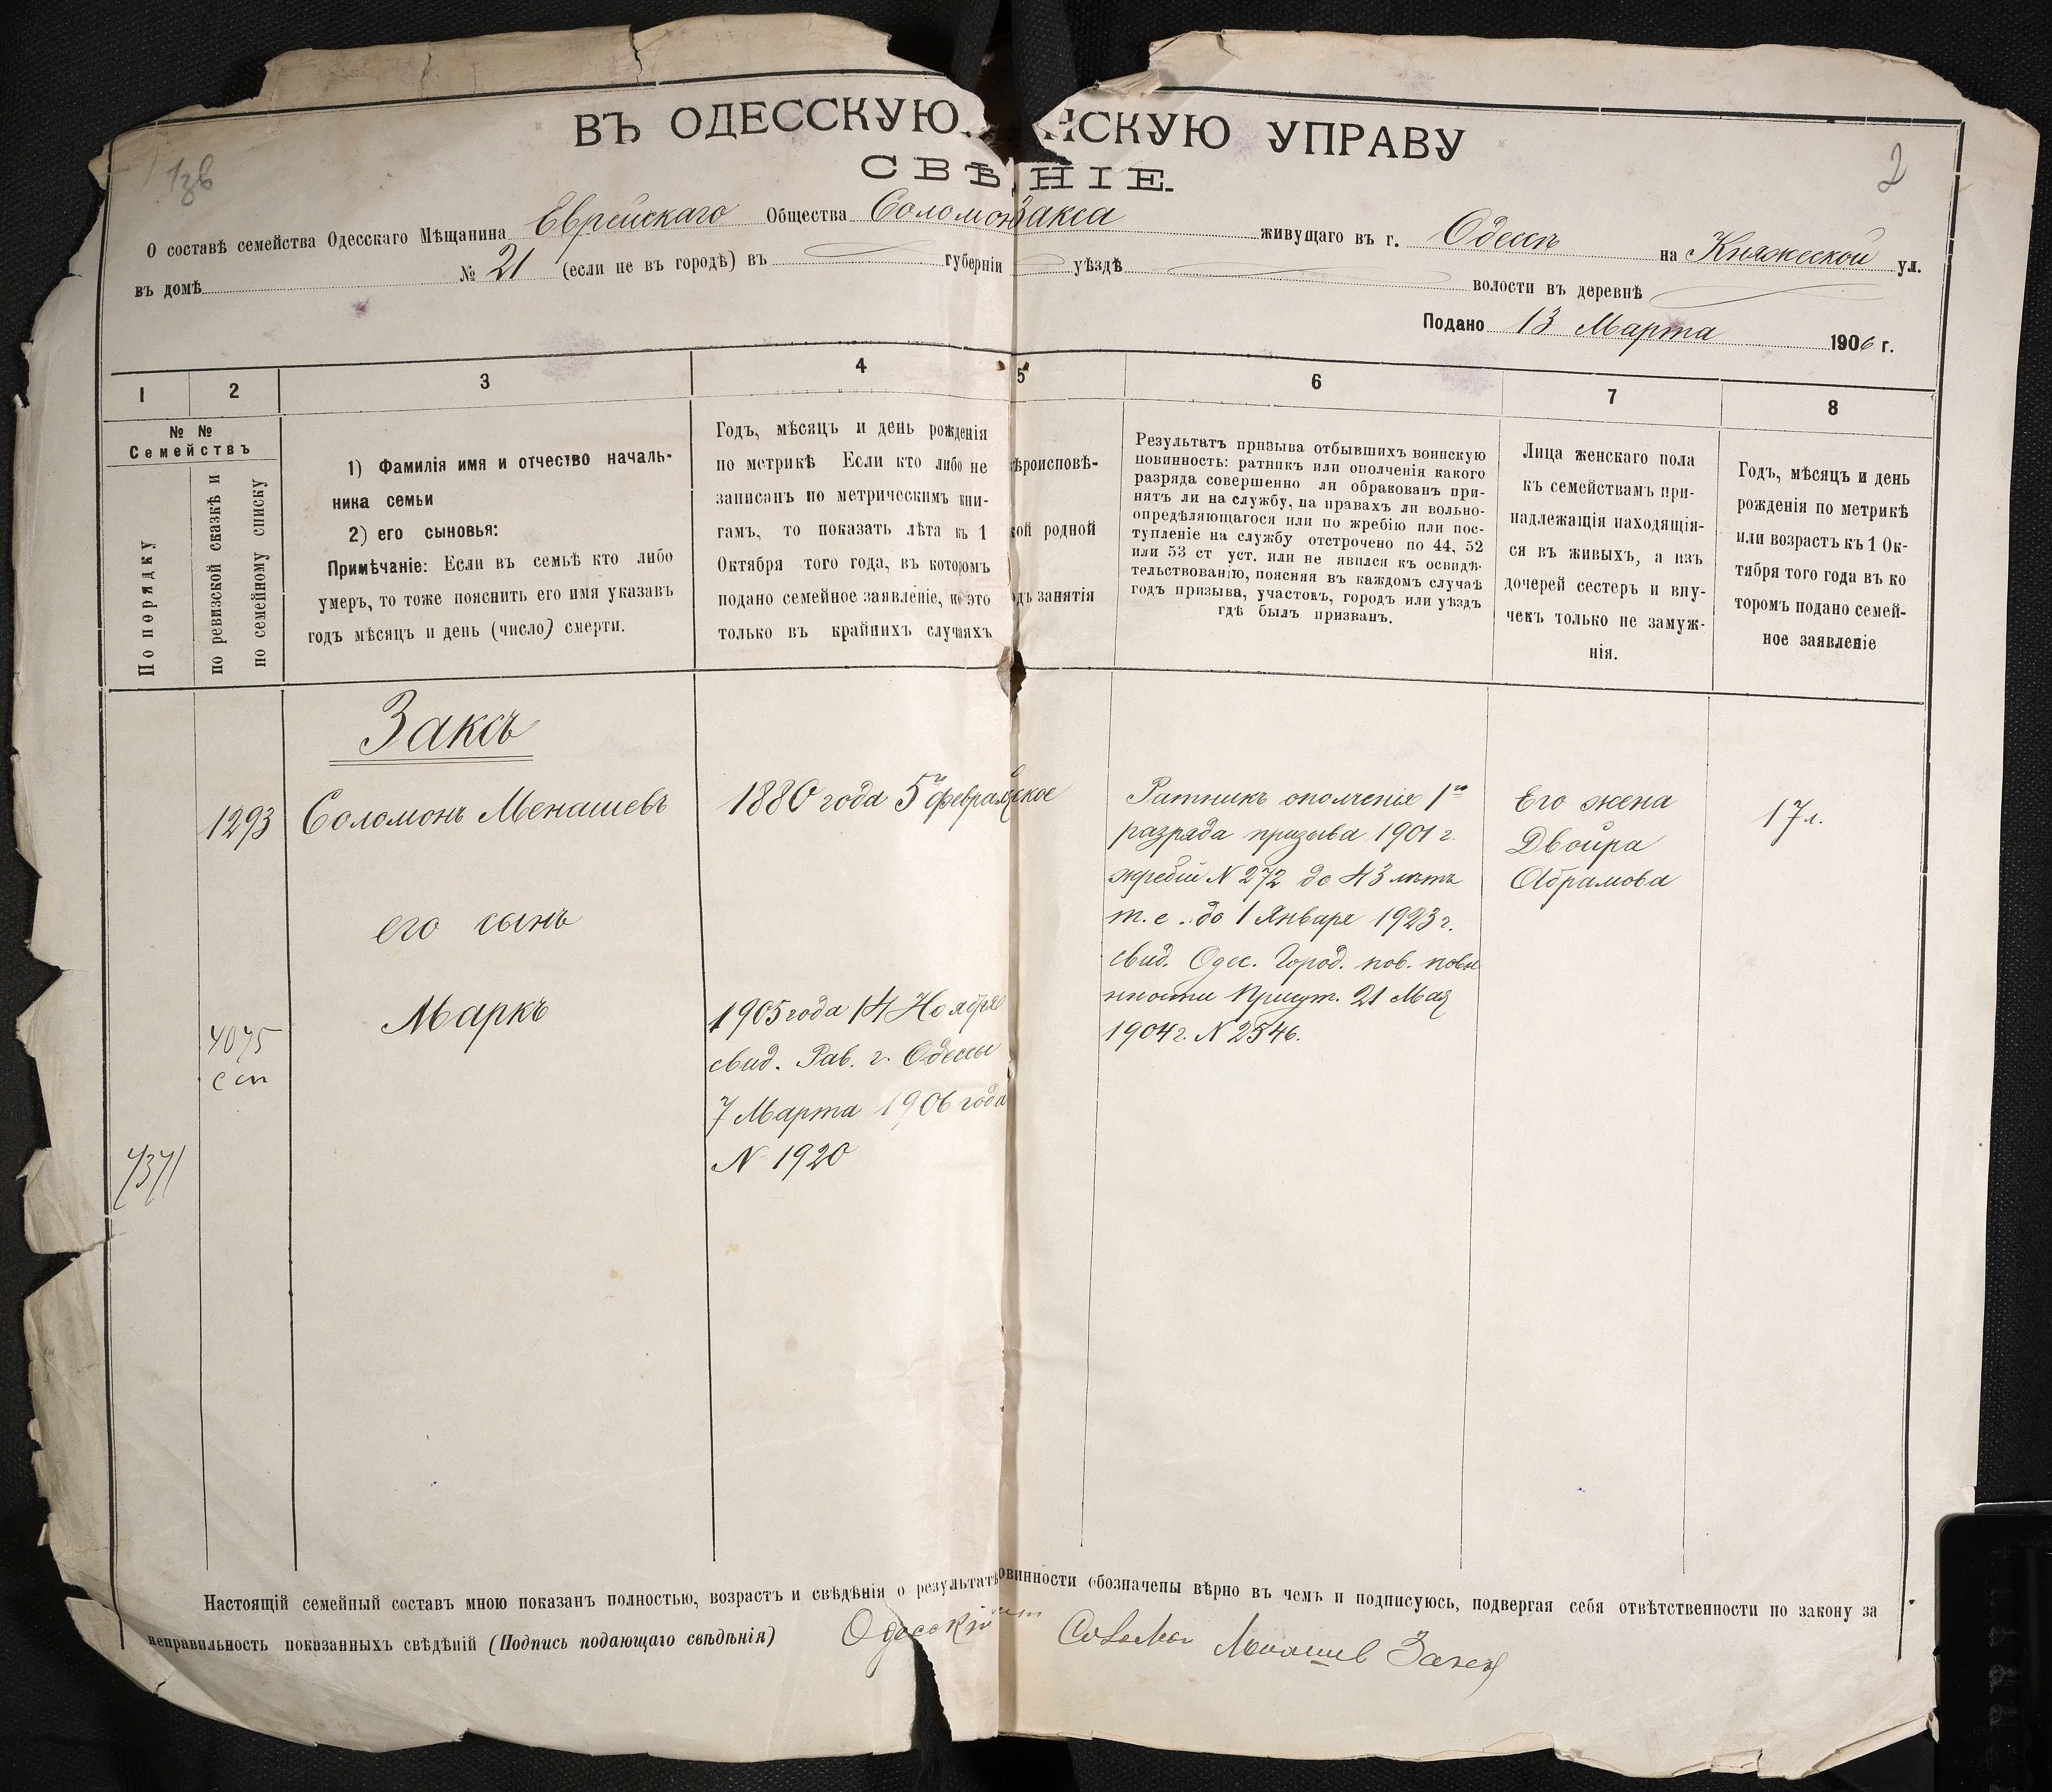 ВЪ ОДЕССКУЮ НСКУЮ УПРАВУ
СВѢ НІЕ.
2
О составѣ семейства Одесскаго Мѣщанина Еврейскаго Общества Соломон Закса живущаго въ г. Одессѣ на Княжеской ул.
въ домѣ № 21 (если не въ городѣ) въ губерніи уѣздѣ волости въ деревнѣ
Подано 13 Марта 1906 г.
1 2 3 4 5 6 7 8
№ №
Семействъ
По порядку
по ревизской сказкѣ и
по семейному списку
1) Фамилія имя и отчество началь-
ника семьи
2) его сыновья:
Примѣчаніе: Если въ семьѣ кто либо
умеръ, то тоже пояснить его имя указавъ
годъ мѣсяцъ и день (число) смерти.
Годъ, мѣсяцъ и день рожденія
по метрикѣ Если кто либо не
записанъ по метрическимъ кни-
гамъ, то показать лѣта къ 1
Октября того года, въ которомъ
подано семейное заявленіе, но это
только въ крайнихъ случаяхъ
ѣроисповѣ-
кой родной
одъ занятія
Результатъ призыва отбывшихъ воинскую
повинность: ратникъ или ополченія какого
разряда совершенно ли обракованъ при-
нятъ ли на службу, на правахъ ли вольно-
опредѣляющагося или по жребію или пос-
тупленіе на службу отстрочено по 44, 52
или 53 ст уст. или не явился къ освидѣ-
тельствованію, поясняя въ каждомъ случаѣ
годъ призыва, участокъ, городъ или уѣздъ
гдѣ былъ призванъ.
Лица женскаго пола
къ семействамъ при-
надлежащія находящія-
ся въ живыхъ, а изъ
дочерей сестеръ и вну-
чекъ только не замуж-
нія.
Годъ, мѣсяцъ и день
рожденія по метрикѣ
или возрастъ къ 1 Ок-
тября того года въ ко
торомъ подано семей-
ное заявленіе
Заксъ
1293 Соломонъ Менашевъ 1880 года 5 феврал ское
его сынъ
4075 Маркъ
1905 года 14 Ноября
свид. Рав. г. Одессы
7 Марта 1906 года
N 1920
Ратникъ ополченія 1го
разряда призыва 1901 г.
жребій N 272 до 43 лѣтъ
т. е. до 1 Января 1923 г.
свид. Одес. Город. по в. повы
нности Присут. 21 Мая
1904 г. N 2546.
Его жена
Двойра
Абрамова
17 л.
Настоящій семейный составъ мною показанъ полностью, возрастъ и свѣдѣнія о результатѣ овинности обозначены вѣрно въ чемъ и подписуюсь, подвергая себя отвѣтственности по закону за
неправильность показанныхъ свѣдѣній (Подпись подающаго свѣдѣнія) Одесскій Соломон Менашев Заксъ